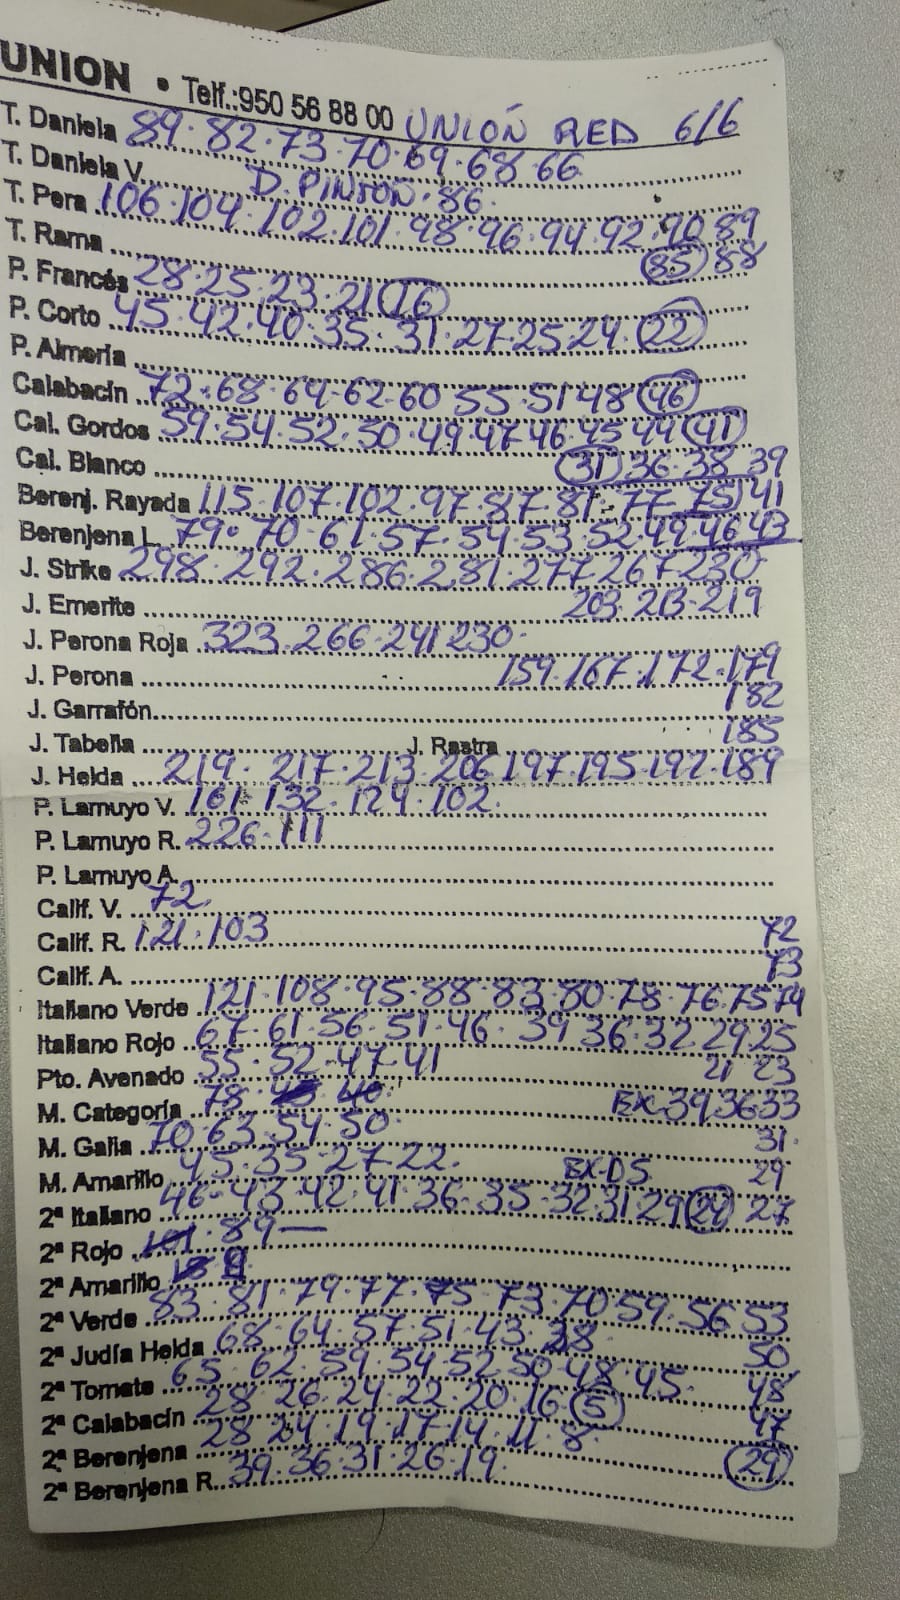 UNION • Telf.:950 56 88 00 UNIÓN RED 6/6
T. Daniela 89·82·73·70·69·68·66
T. Daniela V. D. PINTON·86·
T. Pera 106·104·102·101·98·96·94·92·90 89
T. Rama (85) 88
P. Francés 28·25·23·21 (16)
P. Corto 45·42·40·35·31·27·25·24·(22)
P. Almería
Calabacín 72·68·64·62·60 55·51 48 (46)
Cal. Gordos 59·54·52·50·49·47 46·45 44 (41)
Cal. Blanco (31) 36·38 39
Berenj. Rayada 115·107·102·97·87·81·77·75 41
Berenjena L. 79·70·61·57·54·53·52·49·46 43
J. Strike 298·292·286·281·277·267·230
J. Emerite 203·213·219
J. Perona Roja 323·266·241 230·
J. Perona 159·167·172·179
182
J. Garrafón 185
J. Tabella J. Rastra
J. Helda 219·217·213·206 197·195·192·189
P. Lamuyo V. 161·132·124·102·
P. Lamuyo R. 226·111
P. Lamuyo A.
Calif. V. 72
Calif. R. 121·103 72
Calif. A. 73
Italiano Verde 121·108·95·88·83·80·78·76 75 74
Italiano Rojo 67·61·56·51·46·39 36·32 29·25
Pto. Avenado 55·52·47·41 21 23
M. Categoría 78 40 EX·39 36 33
M. Galia 70·63·54·50· 31·
M. Amarillo 45·35·27·22· EX·DS 29
2ª Italiano 46·43·42·41·36·35·32·31·29 (24) 27
2ª Rojo 101·89—
2ª Amarillo
2ª Verde 83·81·79·77·75·73·70 59·56 53
2ª Judía Helda 68·64·57·51·43·38 50
2ª Tomate 65·62·59·54·52·50·48·45· 48
2ª Calabacín 28·26·24·22·20·16 (5) 47
2ª Berenjena 28 24·19·17·14·11·8· (29)
2ª Berenjena R. 39·36·31·26·19·